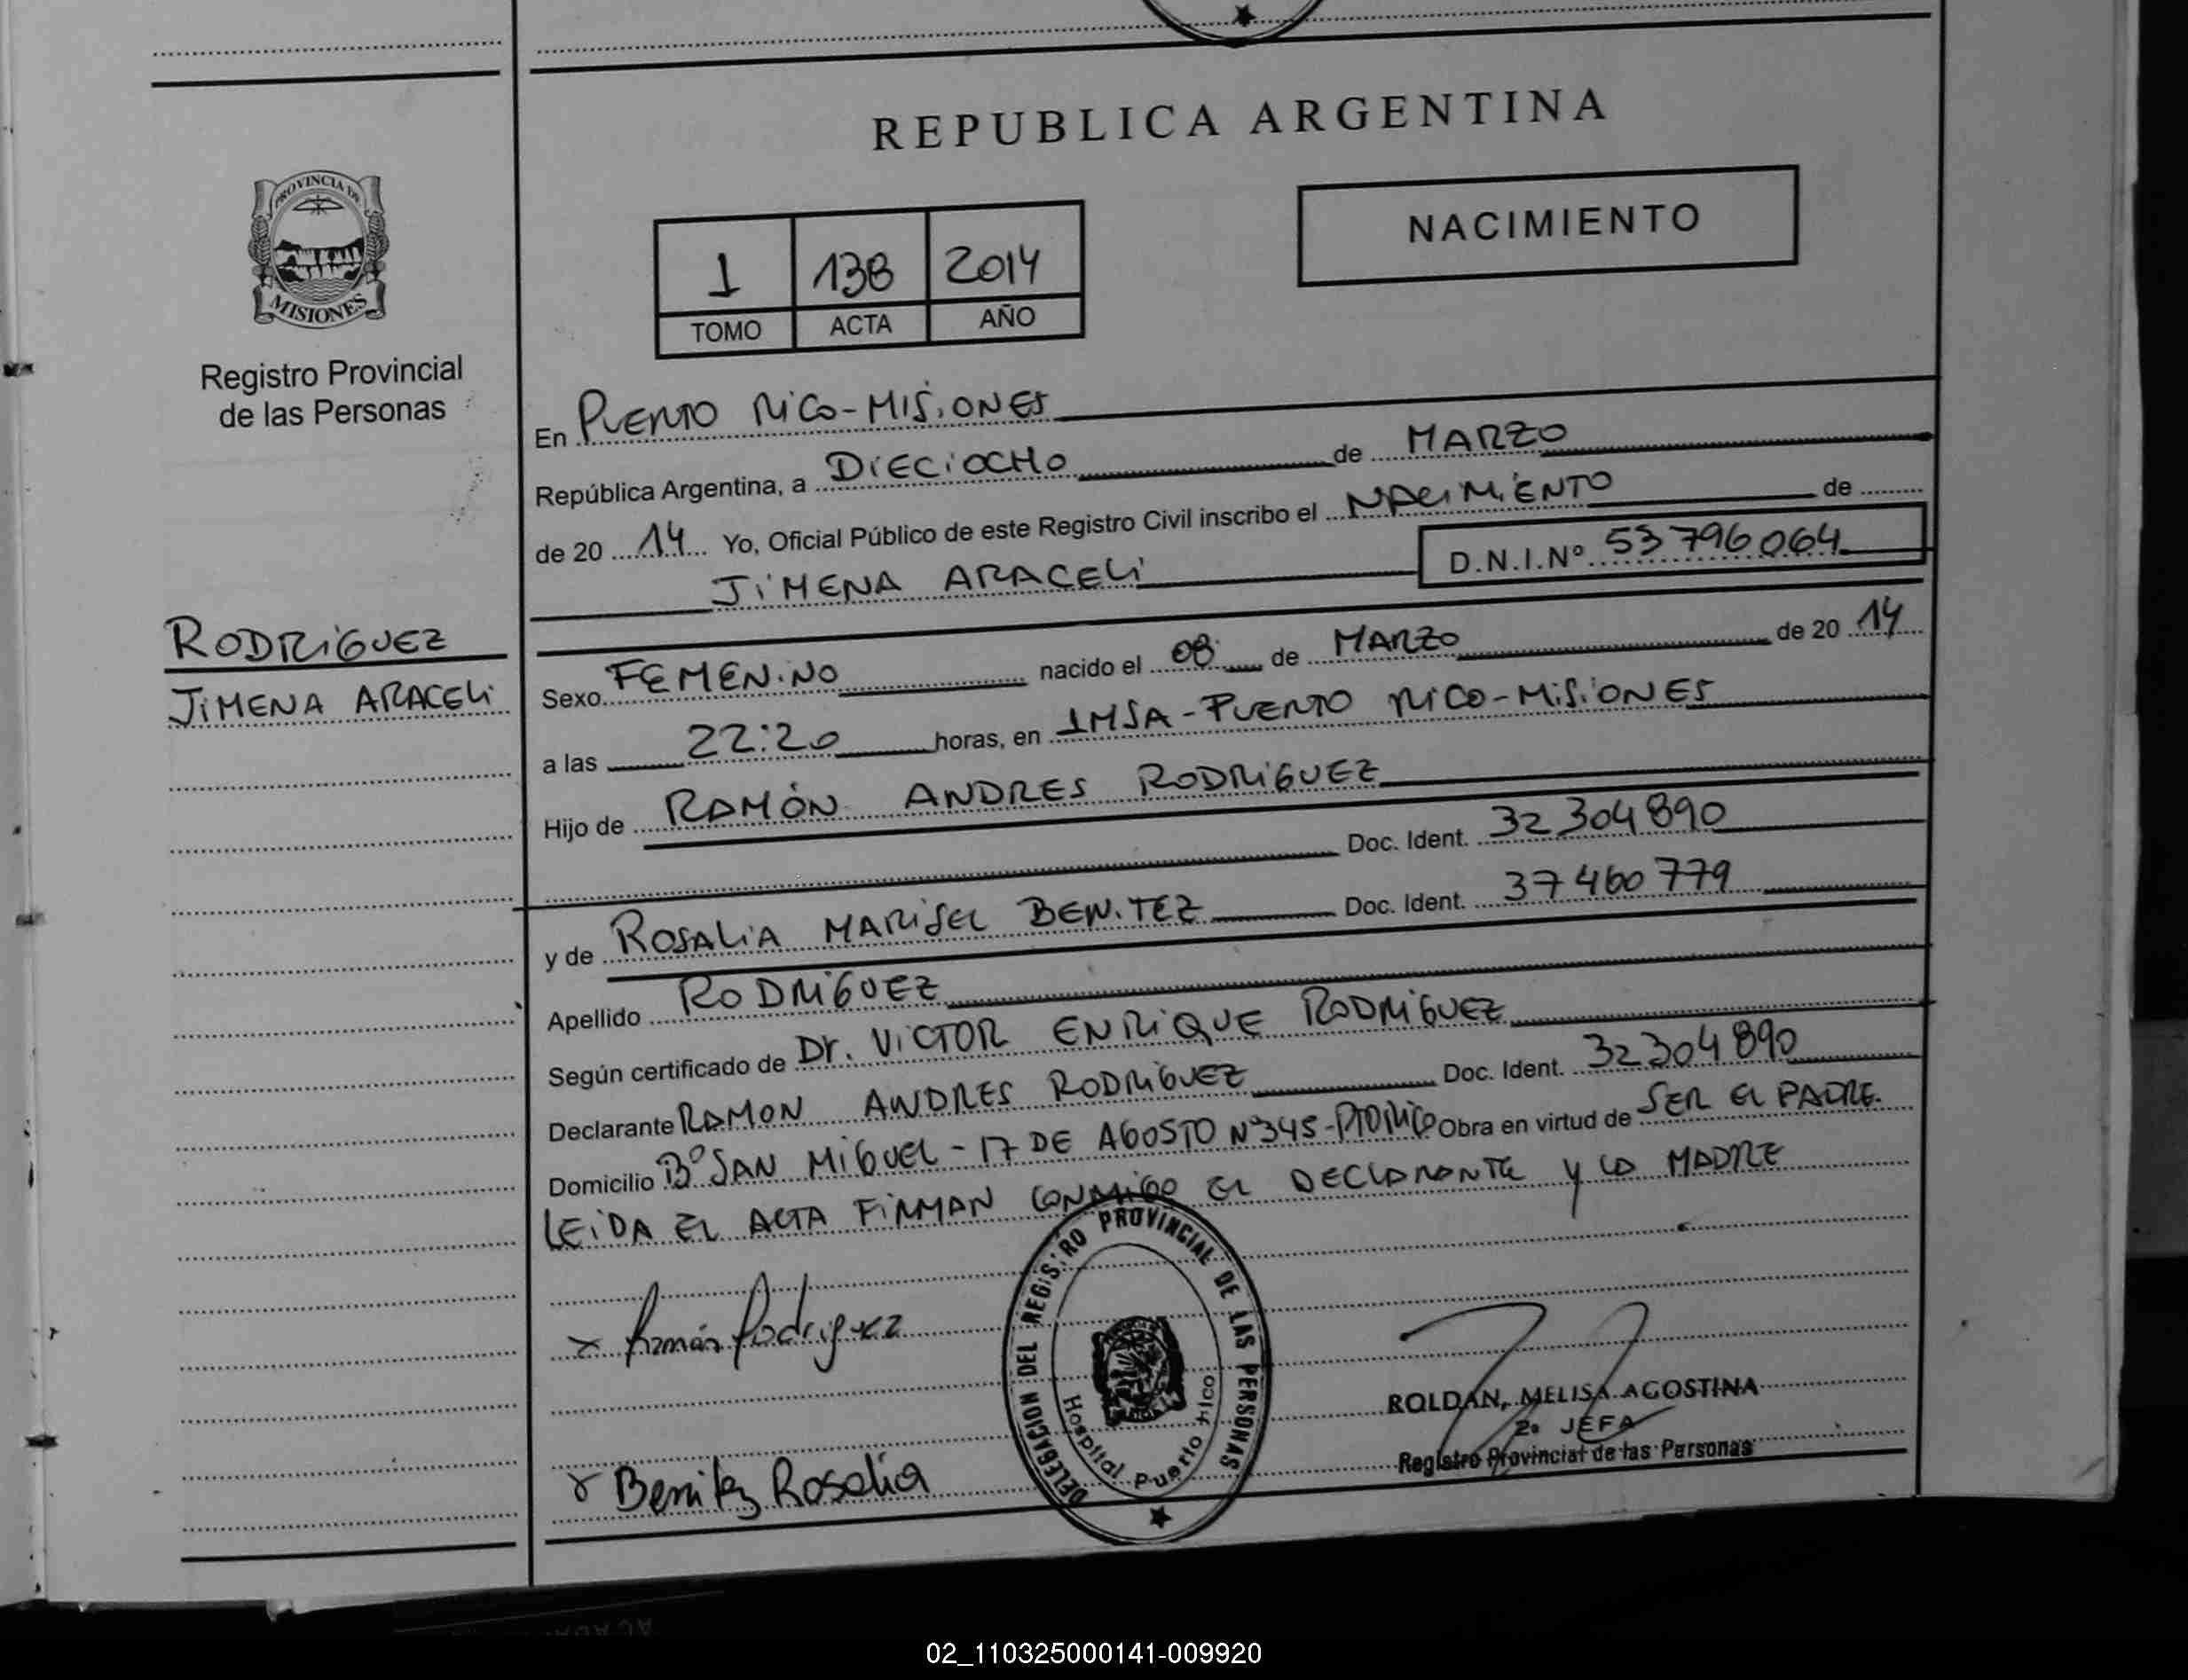 REPUBLICA ARGENTINA
PROVINCIA DE
MISIONES
Registro Provincial
de las Personas
NACIMIENTO
1 138 2014
TOMO ACTA AÑO
En PUERTO RICO-MISIONES
República Argentina, a DIECIOCHO de MARZO
de 20 14 Yo, Oficial Público de este Registro Civil inscribo el NACIMIENTO de
JIMENA ARACELI D.N.I.Nº 53796064
RODRIGUEZ
JIMENA ARACELI
Sexo FEMENINO nacido el 08 de MARZO de 20 14
a las 22:20 horas, en IMSA-PUERTO RICO-MISIONES
Hijo de RAMÓN ANDRES RODRIGUEZ
Doc. Ident. 32304890
y de ROSALIA MARISEL BENITEZ Doc. Ident. 37460779
Apellido RODRIGUEZ
Según certificado de Dr. VICTOR ENRIQUE RODRIGUEZ
Declarante RAMON ANDRES RODRIGUEZ Doc. Ident. 32304890
Domicilio Bº SAN MIGUEL - 17 DE AGOSTO Nº345-PTO RICO Obra en virtud de SER EL PADRE.
LEIDA EL ACTA FIRMAN CONMIGO EL DECLARANTE Y LA MADRE
x Ramón Rodriguez
DELEGACION DEL REGISTRO PROVINCIAL DE LAS PERSONAS
Hospital Puerto Rico
ROLDAN, MELISA AGOSTINA
2º JEFA
Registro Provincial de las Personas
x Benitez Rosalia
02_110325000141-009920